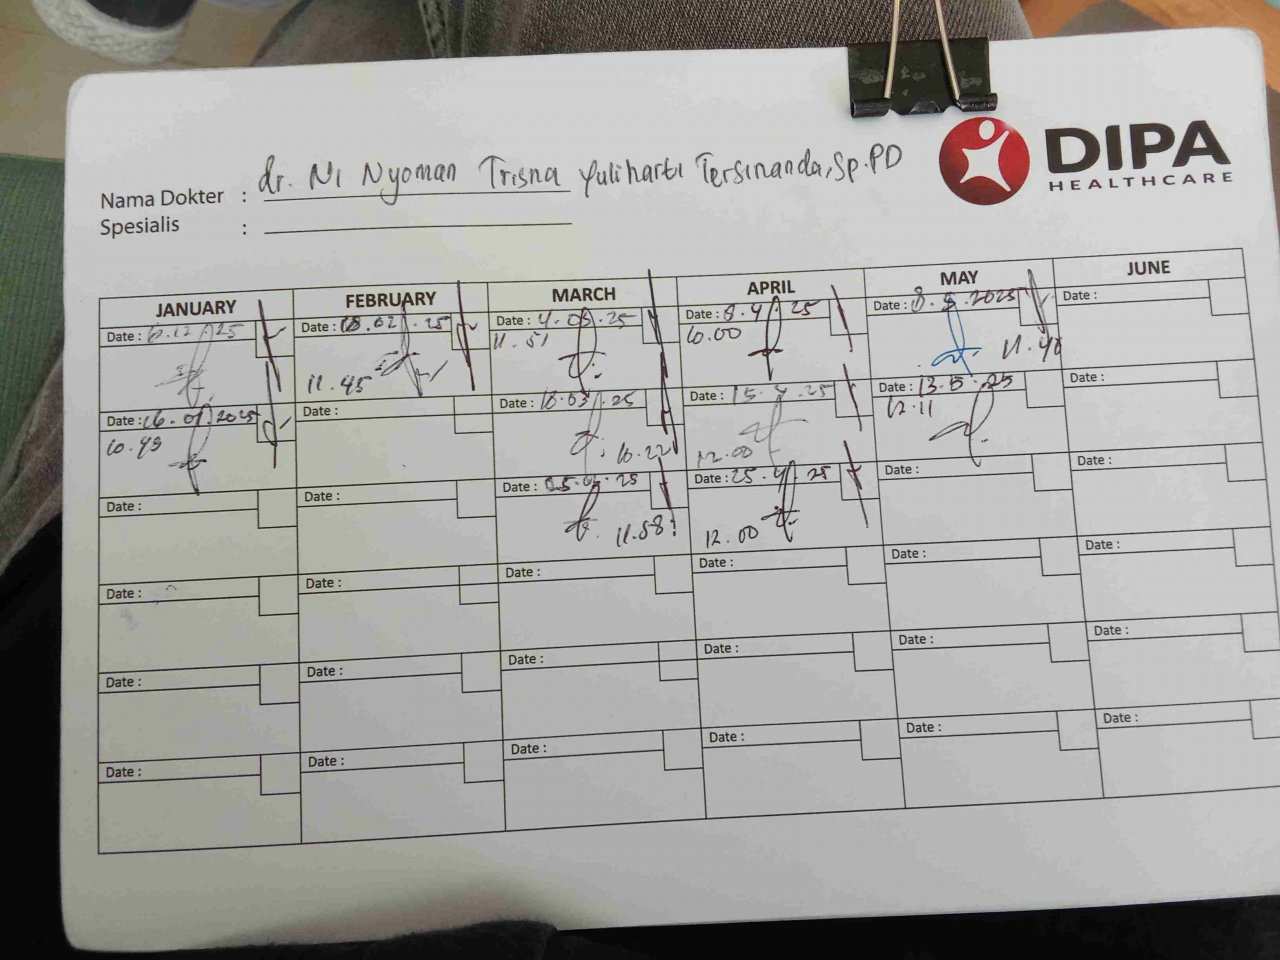 DIPA
HEALTHCARE
Nama Dokter : dr. Ni Nyoman Trisna Yuliharti Tersinanda, Sp.PD
Spesialis :
JANUARY FEBRUARY MARCH APRIL MAY JUNE
Date : Date : 18.02.25 Date : 4.03.25 Date : 8.4.25 Date : 8.5.2025 Date :
11.45 11.51 10.00 11.40
Date : 16.01.2025 Date : Date : 18.03.25 Date : 15.4.25 Date : 13.5.25 Date :
10.49 10.22 12.00 12.11
Date : Date : Date : Date : 25.4.25 Date : Date :
11.58 12.00
Date : Date : Date : Date : Date : Date :
Date : Date : Date : Date : Date : Date :
Date : Date : Date : Date : Date : Date :